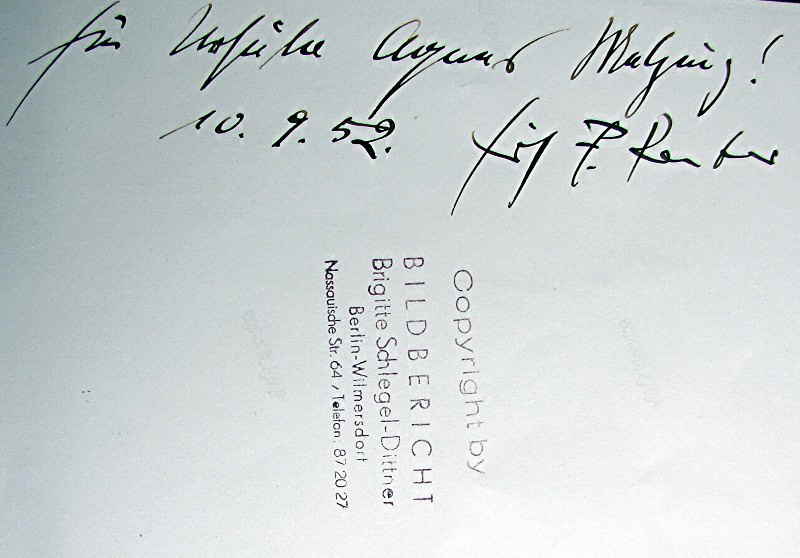 für Ursula Agnes
10. 9. 52. Fritz P. Reuter
Copyright by
BILDBERICHT
Brigitte Schlegel-Dittner
Berlin-Wilmersdorf
Nassauische Str. 64 / Telefon: 87 20 27